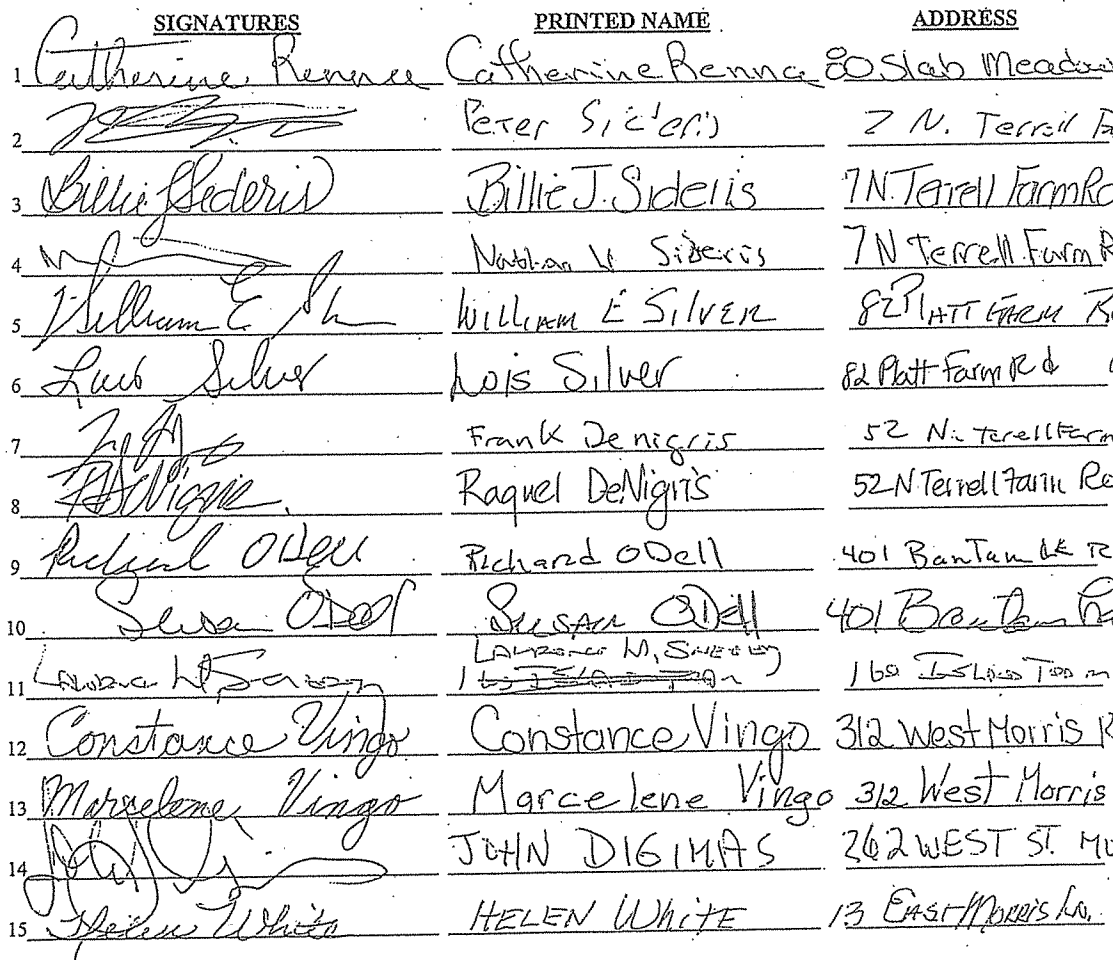 SIGNATURES PRINTED NAME ADDRESS
1 Catherine Renna Catherine Renna 80 Slab Meadow
2 Peter Sideris 7 N. Terrell Fa
3 Billie J Sideris Billie J. Sideris 7 N. Terrell Farm Ro
4 Nathan W Sideris 7 N Terrell Farm R
5 William E WILLIAM E SILVER 82 PLATT FARM R
6 Lois Silver Lois Silver 82 Platt Farm Rd
7 Frank Denigris 52 N. Terell Farm
8 DeNigris Raquel DeNigris 52 N Terrell Farm Ro
9 Richard ODell Richard ODell 401 BanTam Lk R
10 Susan ODell SUSAN ODell 401 Bantam
11 M, 160
12 Constance Vingo Constance Vingo 312 West Morris R
13 Marcelene Vingo Marcelene Vingo 312 West Morris
14 JOHN DIGIMAS 262 WEST ST. MO
15 Helen White HELEN WHITE 13 EAST MORRIS